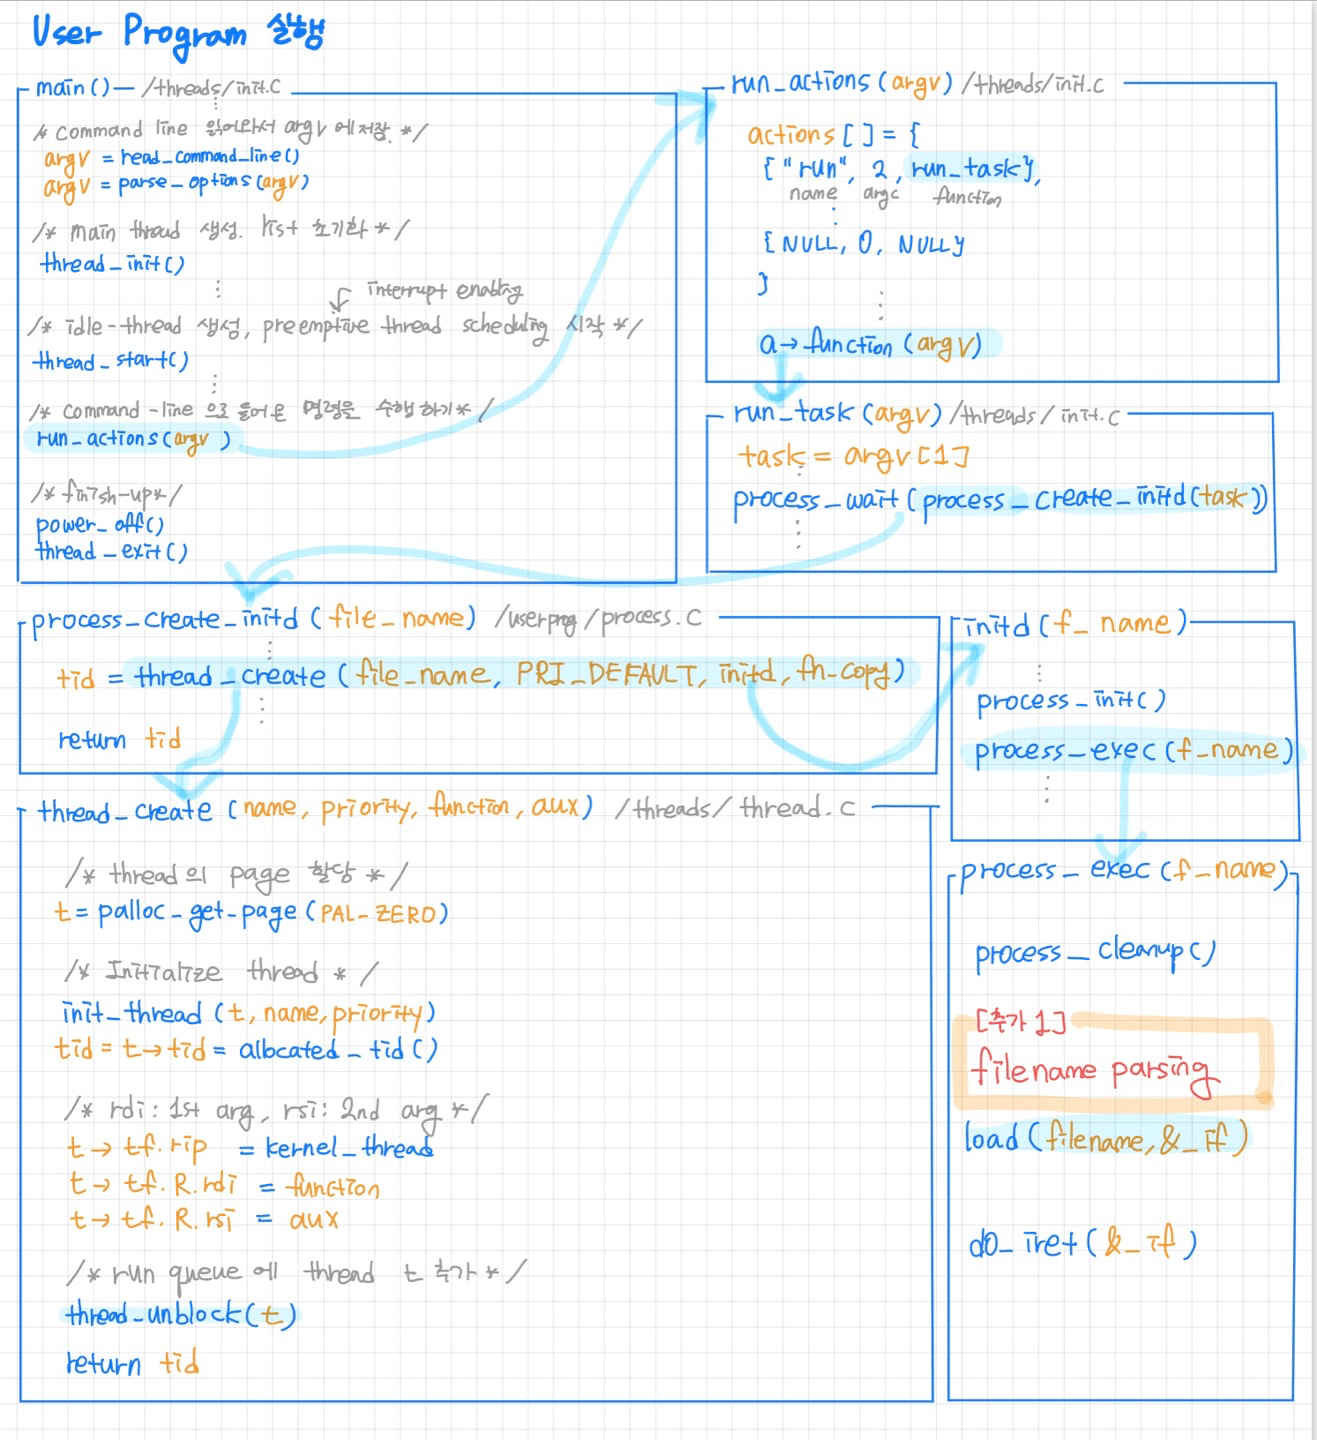 User Program 실행
main() /threads/init.c
/* command line 읽어와서 argv에 저장. */
argv = read_command_line()
argv = parse_options(argv)
/* main thread 생성. list 초기화 */
thread_init()
interrupt enabling
/* idle-thread 생성, preemptive thread scheduling 시작 */
thread_start()
/* command-line으로 들어온 명령을 수행하기 */
run_actions(argv)
/* finish-up */
power_off()
thread_exit()
run_actions(argv) /threads/init.c
actions[] = {
{"run", 2, run_task},
name argc function
{NULL, 0, NULL}
}
a→function(argv)
run_task(argv) /threads/init.c
task = argv[1]
process_wait(process_create_initd(task))
process_create_initd(file_name) /userprog/process.c
tid = thread_create(file_name, PRI_DEFAULT, initd, fn_copy)
return tid
initd(f_name)
process_init()
process_exec(f_name)
thread_create(name, priority, function, aux) /threads/thread.c
/* thread의 page 할당 */
t = palloc_get_page(PAL_ZERO)
/* Initialize thread */
init_thread(t, name, priority)
tid = t→tid = allocated_tid()
/* rdi: 1st arg, rsi: 2nd arg */
t→tf.rip = kernel_thread
t→tf.R.rdi = function
t→tf.R.rsi = aux
/* run queue에 thread t 추가 */
thread_unblock(t)
return tid
process_exec(f_name)
process_cleanup()
[추가 1]
filename parsing
load(filename, &_if)
do_iret(&_if)